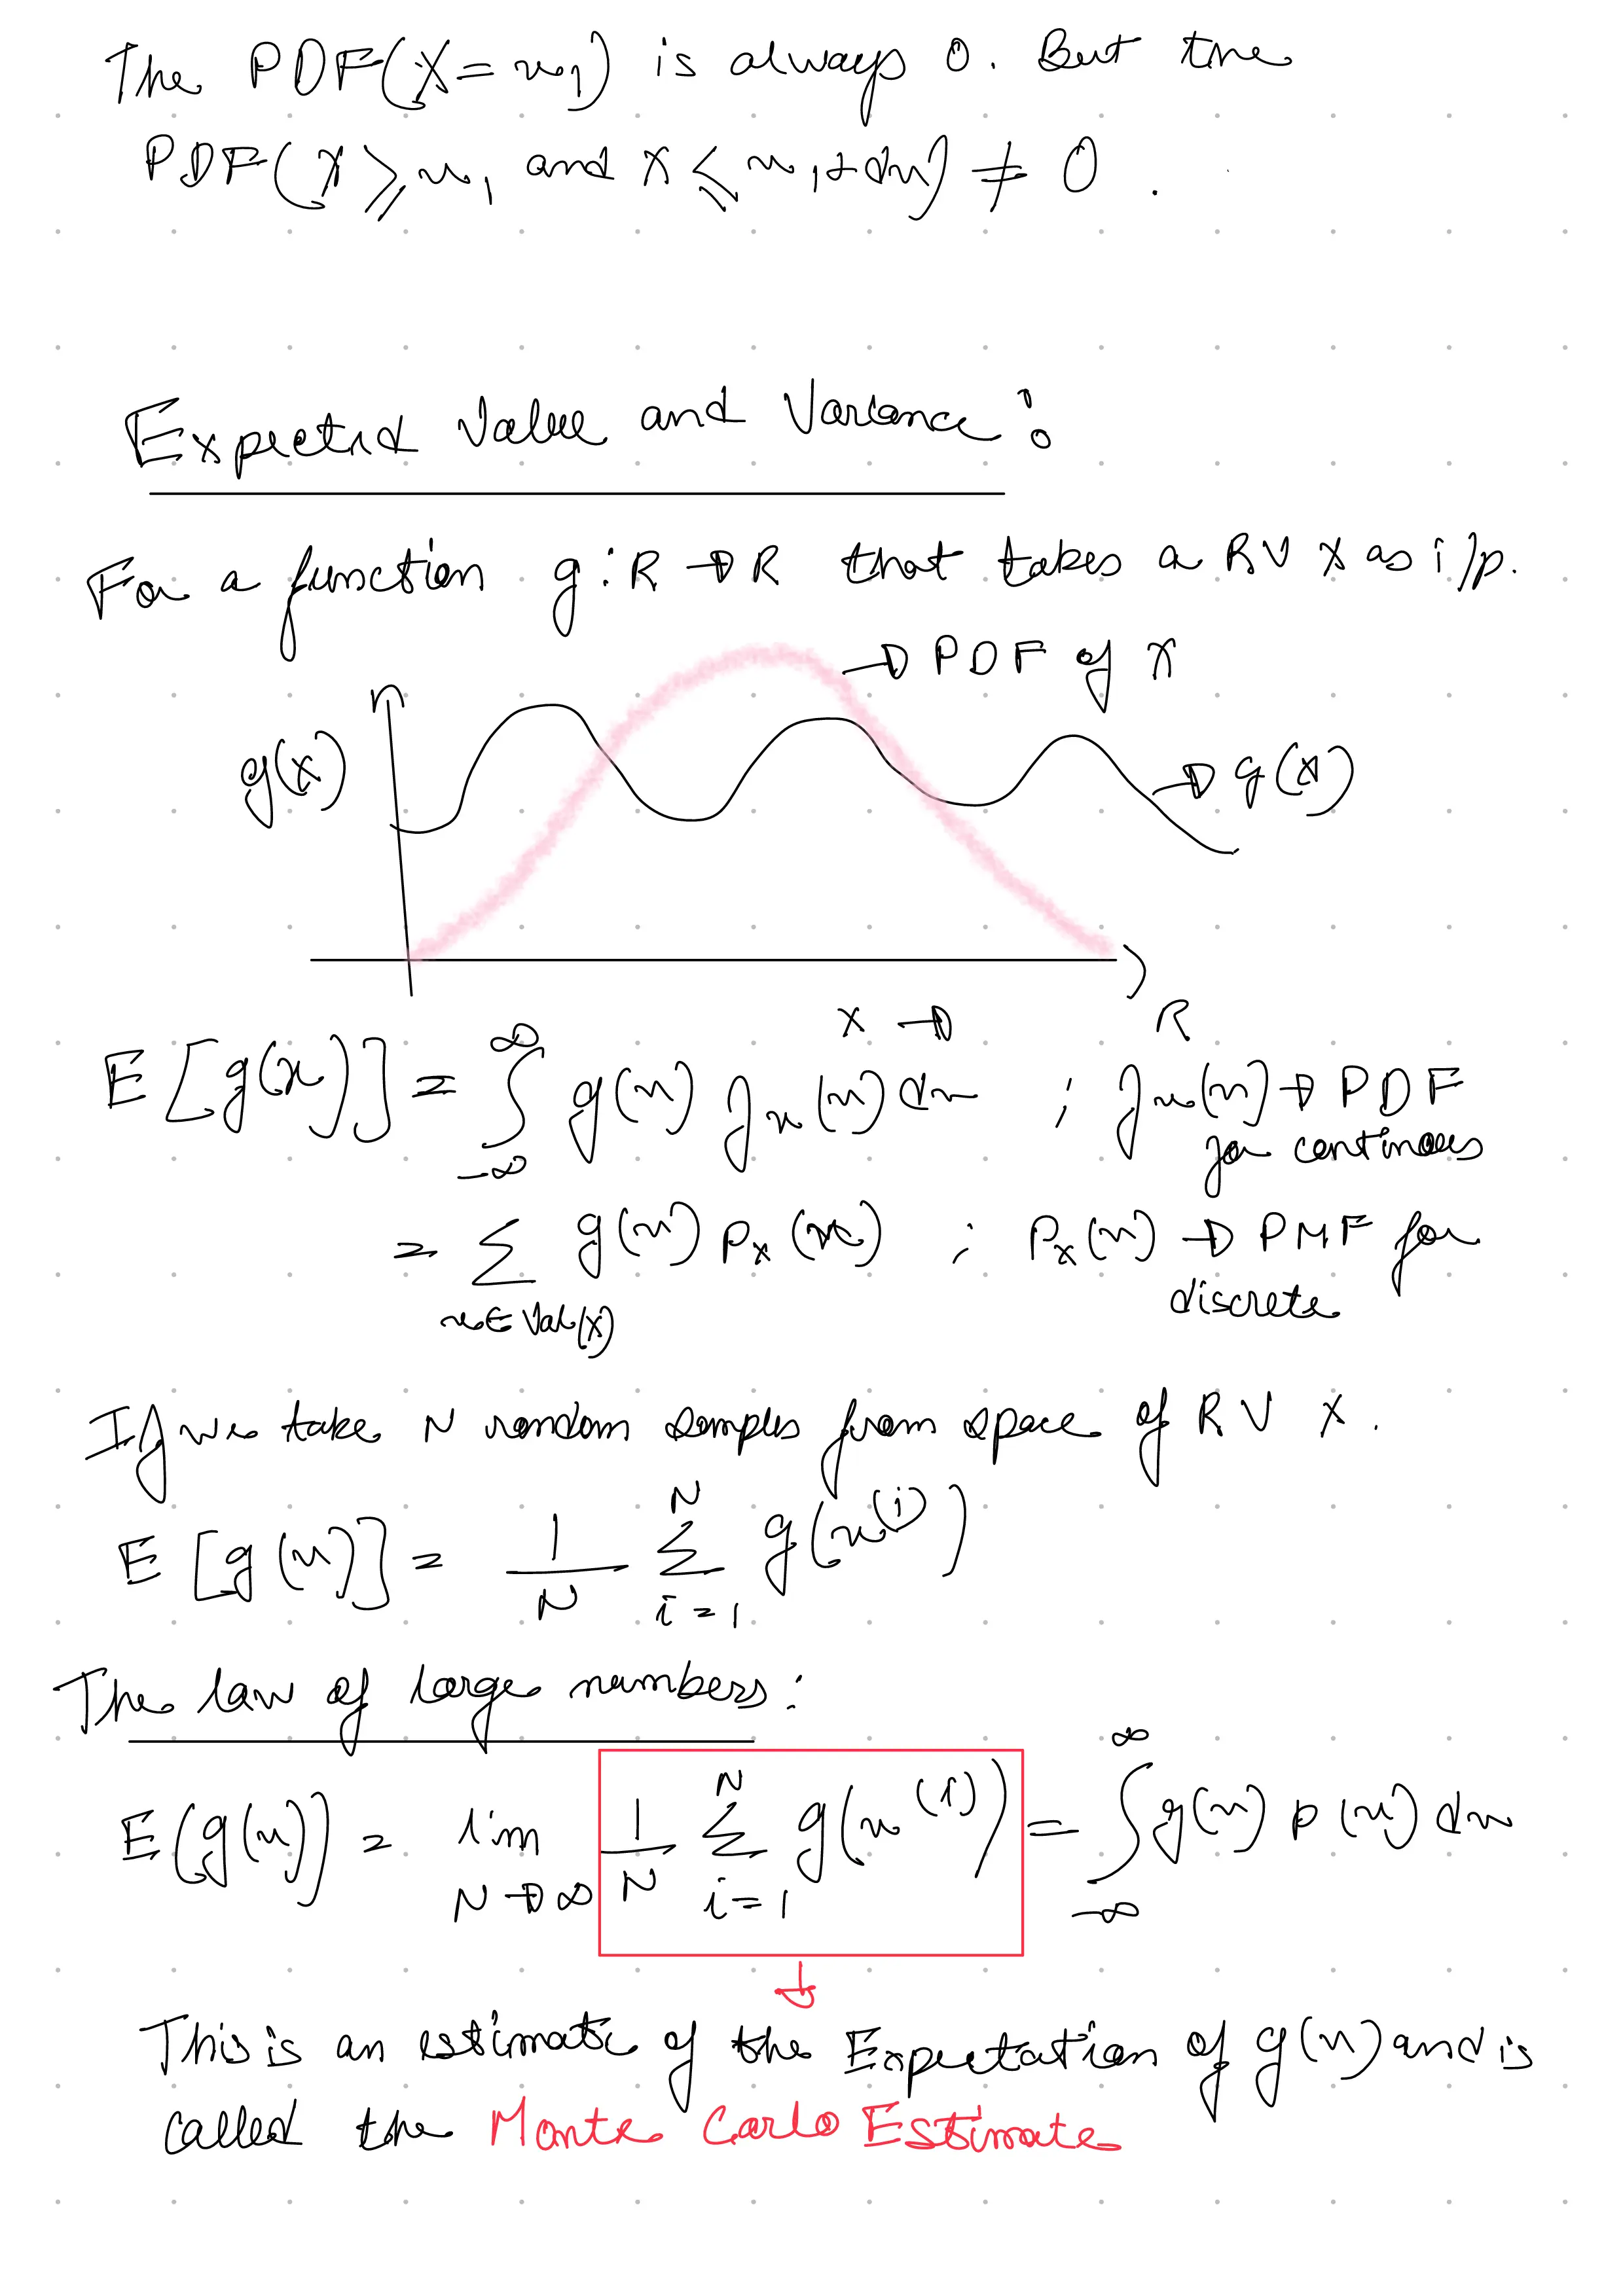 The PDF(X = x₁) is always 0. But the
PDF(X ⩾ x₁ and X ⩽ x₁+dx) ≠ 0 .
Expected Value and Variance :
For a function g : R → R that takes a RV X as i/p.
→ PDF of X
g(x)
→ g(x)
X →
R
E [g(x)] = ∫_{-∞}^{∞} g(x) f_x(x) dx ; f_x(x) → PDF
for continous
= Σ_{x ∈ Val(X)} g(x) p_X(x) ; p_X(x) → PMF for
discrete
If we take N random samples from space of RV X .
E [g(x)] = 1/N Σ_{i=1}^{N} g(x^{(i)})
The law of large numbers :
E(g(x)) = lim_{N → ∞} 1/N Σ_{i=1}^{N} g(x^{(i)}) = ∫_{-∞}^{∞} g(x) p(x) dx
This is an estimate of the Expectation of g(x) and is
called the Monte Carlo Estimate